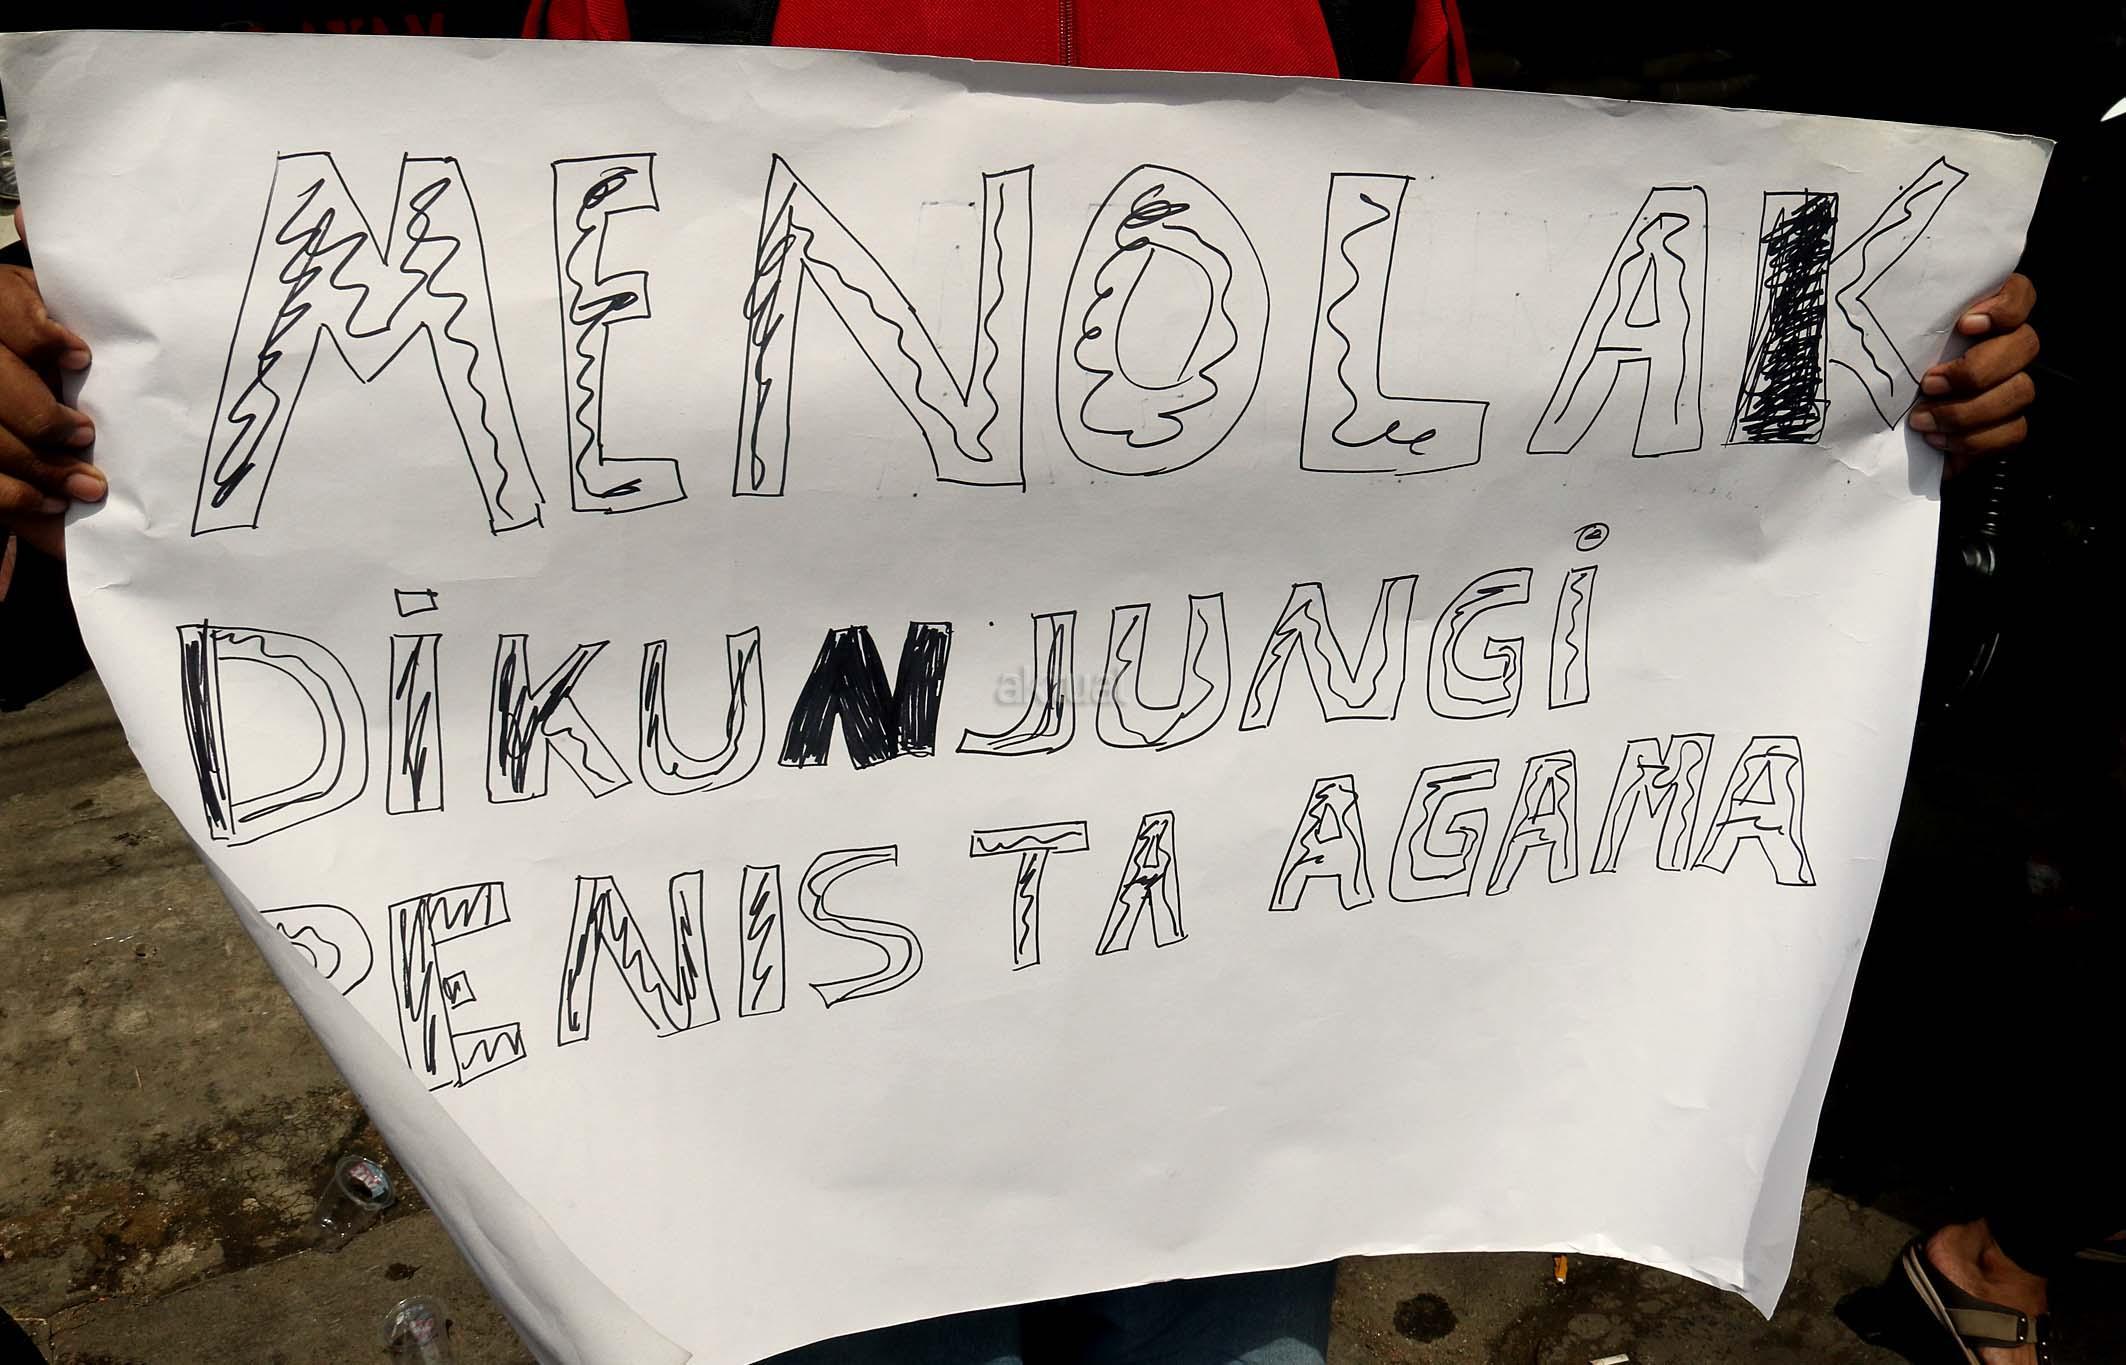 MENOLAK
DiKUNJUNGi
PENISTA AGAMA
aktual